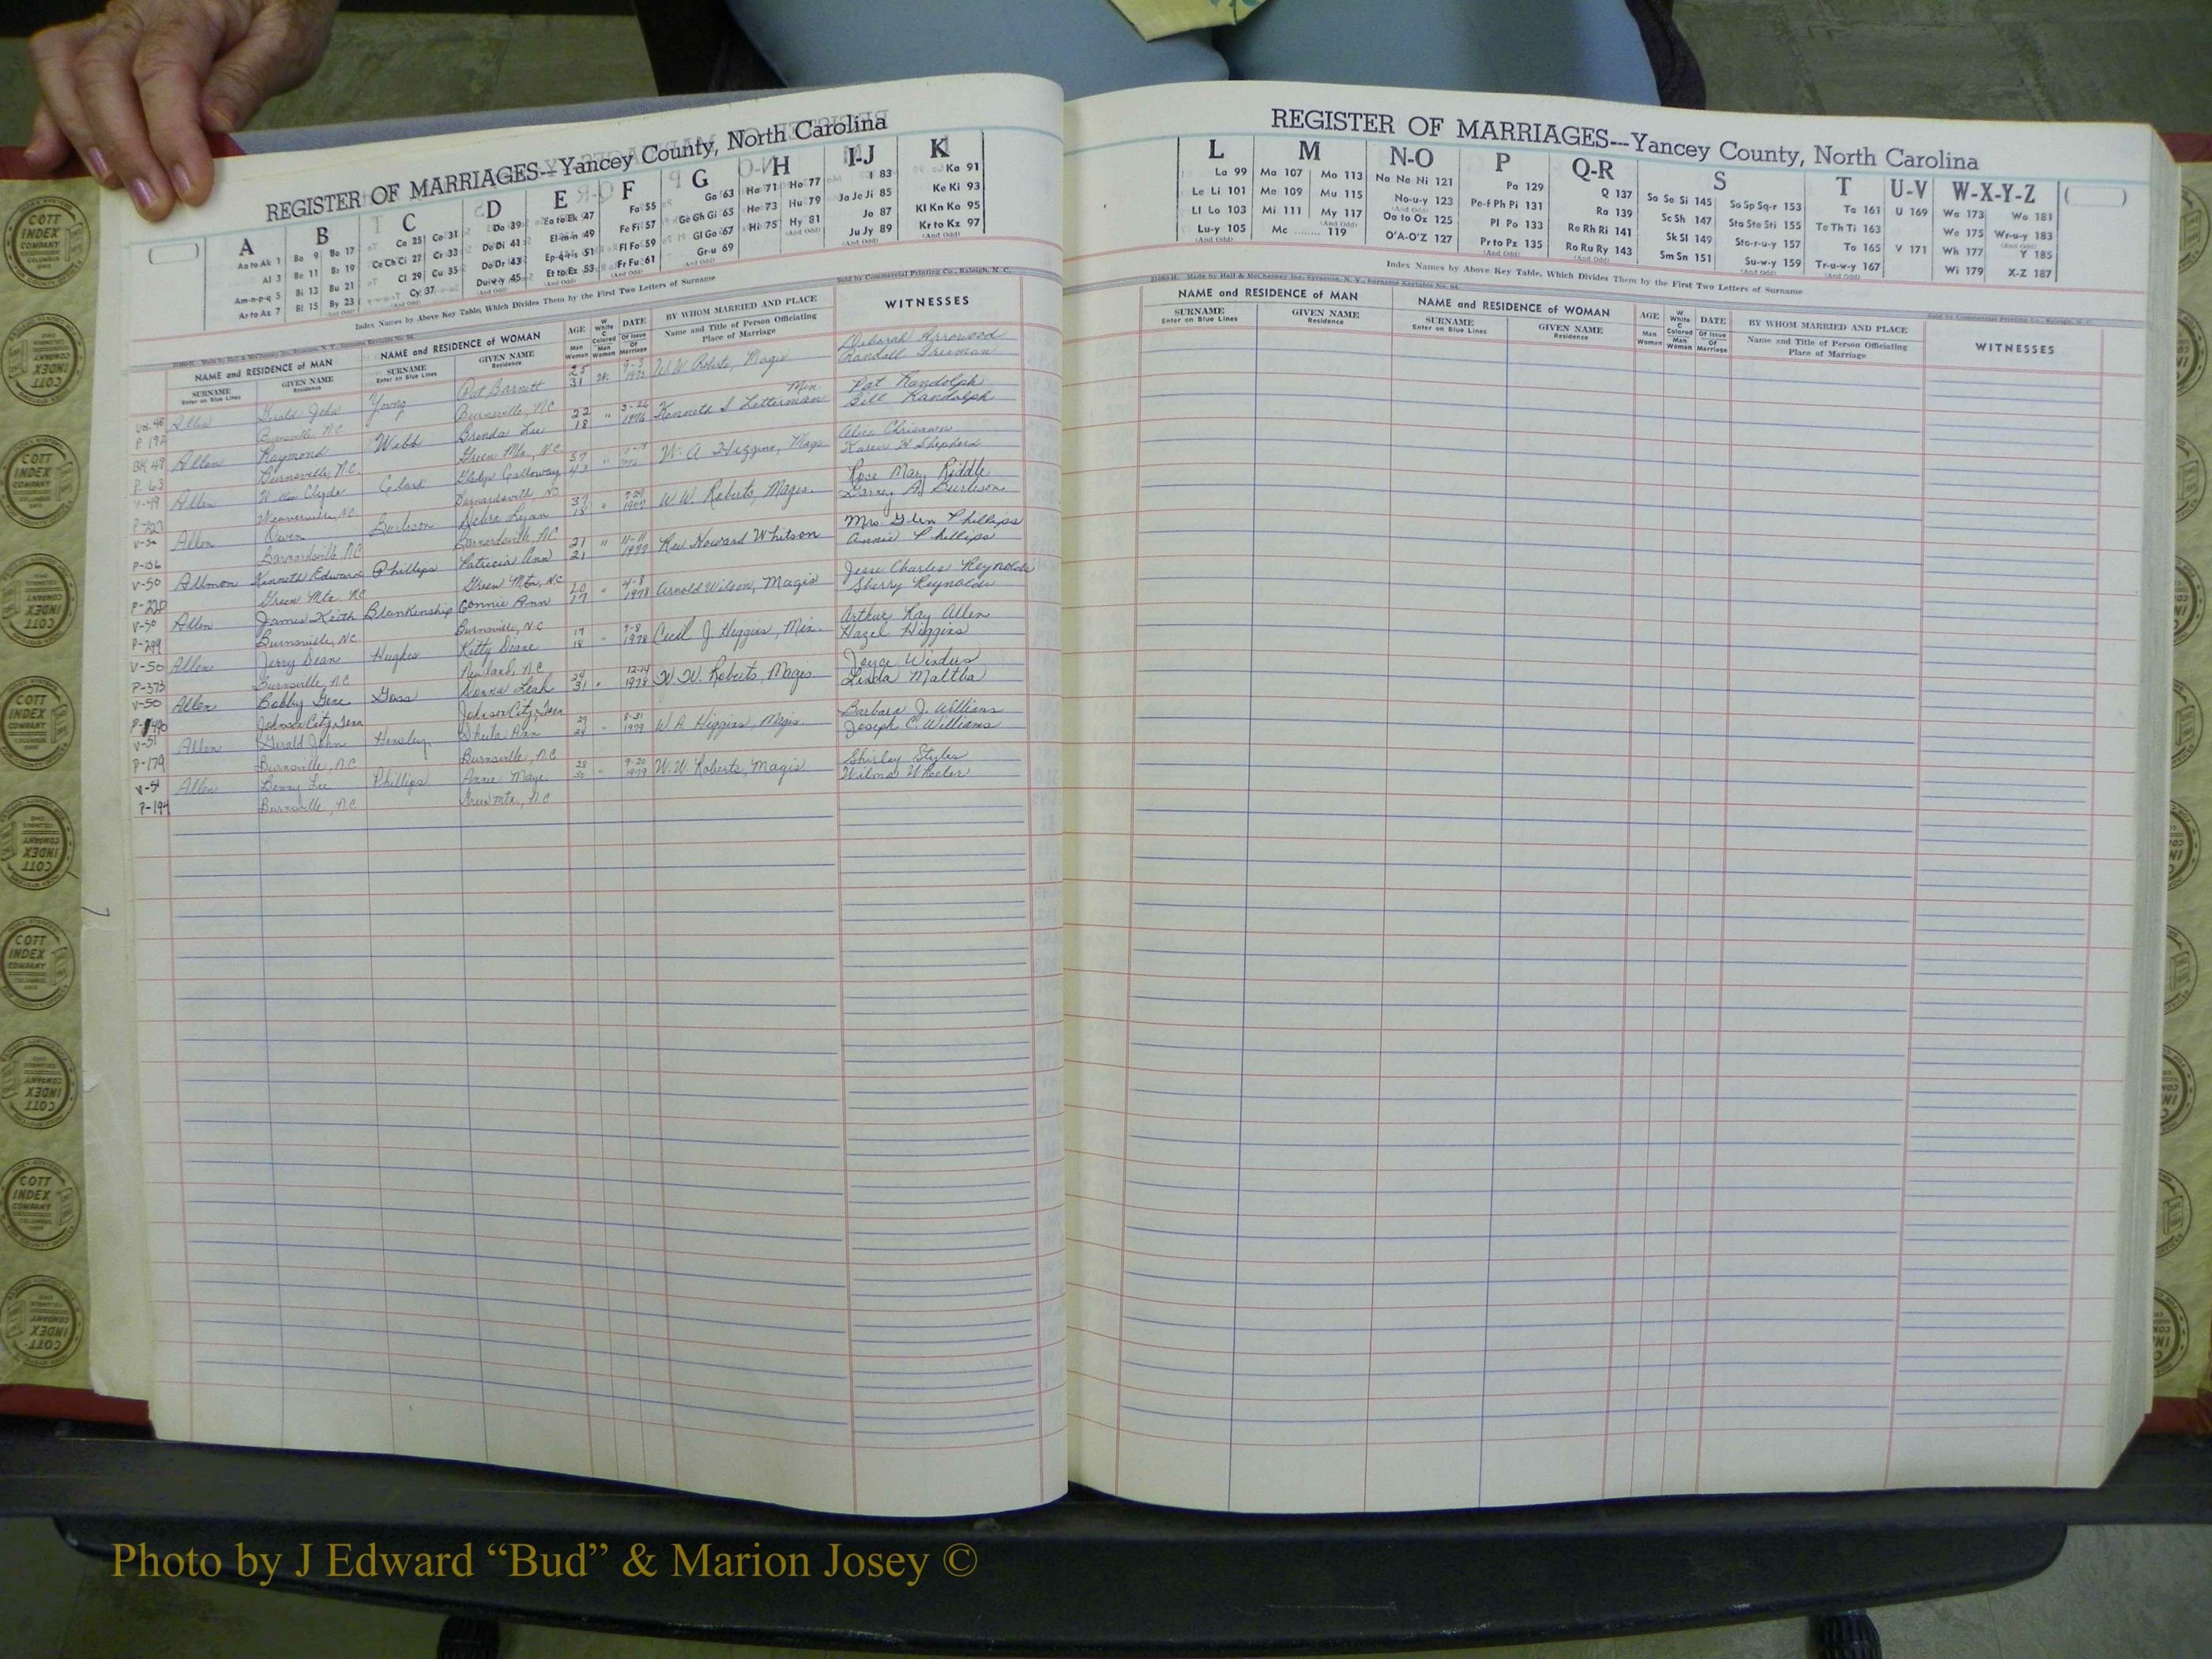 REGISTER OF MARRIAGES---Yancey County, North Carolina
A B C D E F G H I-J K
Ae to Ak 1 Ba 9 Bo 17 Ca 25 Co 31 Da 39 Ea to Ek 47 Fa 55 Ga 63 Ha 71 Ho 77 I 83 Ka 91
Al 3 Be 11 Br 19 Ce Ch Ci 27 Cr 33 De Di 41 El-m-n 49 Fe Fi 57 Ge Gh Gi 65 He 73 Hu 79 Ja Je Ji 85 Ke Ki 93
Am-n-p-q 5 Bi 13 Bu 21 Cl 29 Cu 35 Do Dr 43 Ep-q-r-s 51 Fl Fo 59 Gl Go 67 Hi 75 Hy 81 Jo 87 Kl Kn Ko 95
Ar to Az 7 Bl 15 By 23 Cy 37 Du-w-y 45 Et to Ez 53 Fr Fu 61 Gr-u 69 Ju Jy 89 Kr to Kz 97
Index Names by Above Key Table, Which Divides Them by the First Two Letters of Surname
Sold by Commercial Printing Co., Raleigh, N. C.
NAME and RESIDENCE of MAN NAME and RESIDENCE of WOMAN AGE W White C Colored DATE BY WHOM MARRIED AND PLACE WITNESSES
SURNAME Enter on Blue Lines GIVEN NAME Residence SURNAME Enter on Blue Lines GIVEN NAME Residence Man Woman Man Woman Of Issue Of Marriage Name and Title of Person Officiating Place of Marriage
Vol. 48 Allen Gerald John Young Pat Barnett 25 W. W. W. Roberts, Magis Deborah Arrowood
P. 192 Burnsville, N.C. Burnsville, NC 31 Randall Freeman
BK 49 Allen Raymond Webb Brenda Lee 22 " 1976 Kenneth S Letterman Min. Pat Randolph
P. 63 Burnsville, N.C. Green Mtn., NC 18 Bill Randolph
V-49 Allen Willie Clyde Clark Gladys Calloway 57 " W. A Higgins, Mags Alice Chrisawn
Weaverville, NC Barnardsville, NC 43 Karen H Shepherd
V-50 Allen Owen Burleson Debra Lynn 37 " W. W. Roberts, Magis. Rose Mary Riddle
P-136 Barnardsville, NC Barnardsville, NC 18 Garney A. Burleson
V-50 Allmon Kenneth Edward Phillips Patricia Ann 21 " 11-11 1977 Rev Howard Whitson Mrs. Glen Phillips
P-220 Green Mtn. NC Green Mtn, NC 21 Annie Phillips
V-50 Allen James Keith Blankenship Connie Ann 20 " 4-8 1978 Arnold Wilson, Magis Jesse Charles Reynolds
P-299 Burnsville, NC Burnsville, N.C 17 Sherry Reynolds
V-50 Allen Jerry Dean Hughes Kitty Diane 19 " 9-8 1978 Cecil J. Higgins, Min. Arthur Ray Allen
P-373 Burnsville, N.C Newland, N.C. 18 Hazel Higgins
V-50 Allen Bobby Gene Goss Donna Leah 29 " 12-14 1978 W. W. Roberts, Magis. Joyce Winters
Johnson City, Tenn Johnson City, Tenn 31 Linda Maltba
V-51 Allen Gerald John Hensley Sheila Ann 29 " 8-31 1979 W A Higgins, Magis. Barbara J. Williams
P-179 Burnsville, N.C Burnsville, N.C 24 Joseph C. Williams
V-51 Allen Benny Lee Phillips Annie Maye 28 " 9-20 1979 W. W. Roberts, Magis. Shirley Styles
P-194 Burnsville, N.C Green Mtn., N.C Wilma Wheeler
REGISTER OF MARRIAGES---Yancey County, North Carolina
L M N-O P Q-R S T U-V W-X-Y-Z
La 99 Ma 107 Mo 113 Na Ne Ni 121 Pa 129 Q 137 Sa Se Si 145 So Sp Sq-r 153 Ta 161 U 169 Wa 173 Wo 181
Le Li 101 Me 109 Mu 115 No-u-y 123 Pe-f Ph Pi 131 Ra 139 Sc Sh 147 Sta Ste Sti 155 Te Th Ti 163 We 175 Wr-u-y 183
Ll Lo 103 Mi 111 My 117 Oa to Oz 125 Pl Po 133 Re Rh Ri 141 Sk Sl 149 Sto-r-u-y 157 To 165 V 171 Wh 177 Y 185
Lu-y 105 Mc 119 O'A-O'Z 127 Pr to Pz 135 Ro Ru Ry 143 Sm Sn 151 Su-w-y 159 Tr-u-w-y 167 Wi 179 X-Z 187
Index Names by Above Key Table, Which Divides Them by the First Two Letters of Surname
NAME and RESIDENCE of MAN NAME and RESIDENCE of WOMAN AGE W White C Colored DATE BY WHOM MARRIED AND PLACE WITNESSES
SURNAME Enter on Blue Lines GIVEN NAME Residence SURNAME Enter on Blue Lines GIVEN NAME Residence Man Woman Man Woman Of Issue Of Marriage Name and Title of Person Officiating Place of Marriage
COTT INDEX COMPANY COLUMBUS OHIO
Photo by J Edward “Bud” & Marion Josey ©